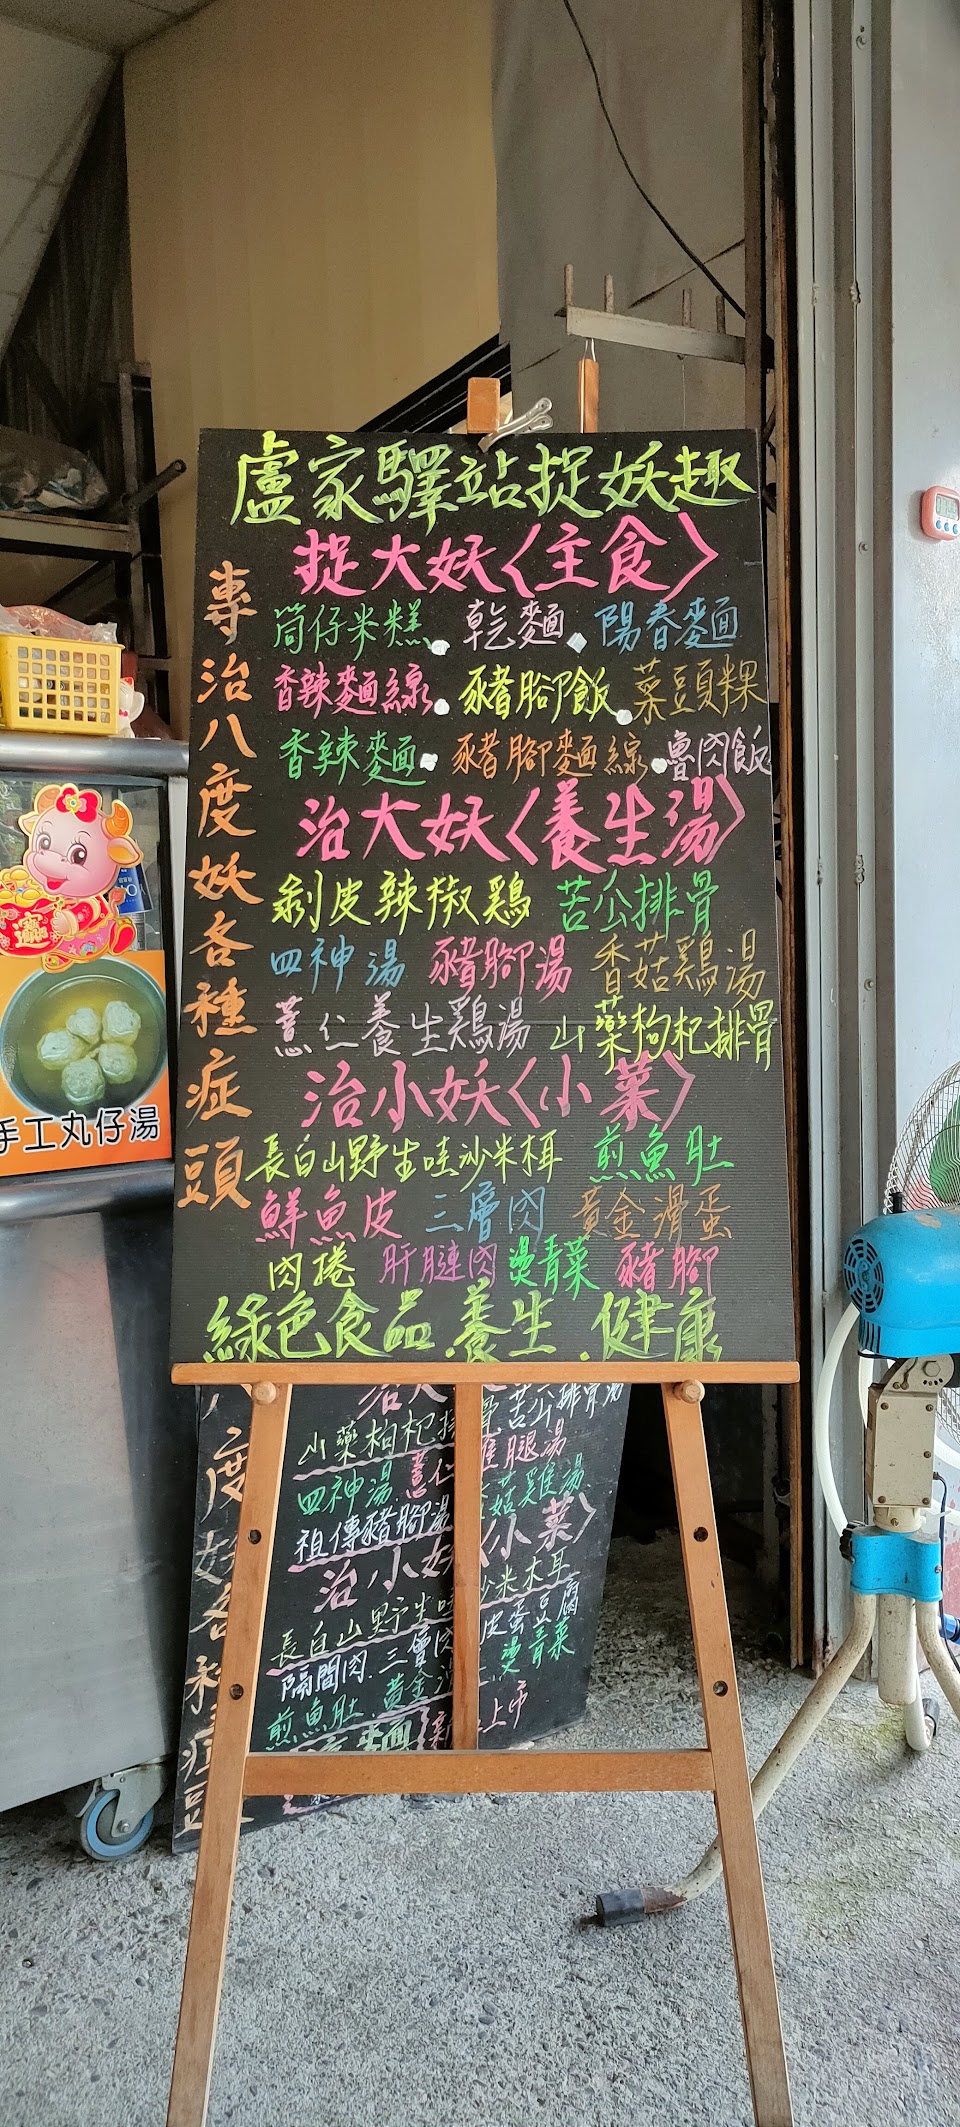 盧家驛站捉妖趣
專治八度妖各種症頭
捉大妖〈主食〉
筒仔米糕.乾麵.陽春麵
香辣麵線.豬腳飯.菜頭粿
香辣麵.豬腳麵線.魯肉飯
治大妖〈養生湯〉
剝皮辣椒鷄 苦瓜排骨
四神湯 豬腳湯 香菇鷄湯
薏仁養生鷄湯 山藥枸杞排骨
治小妖〈小菜〉
長白山野生哇沙米木耳 煎魚肚
鮮魚皮 三層肉 黃金滑蛋
肉捲 肝腱肉 燙青菜 豬腳
綠色食品.養生.健康
手工丸仔湯
治大
山藥枸杞排骨 苦瓜排骨湯
四神湯 薏仁 腿湯
菇雞湯
祖傳豬腳湯
治小妖〈小菜〉
長白山野生哇沙米木耳
隔間肉.三層肉 皮蛋豆腐
煎魚肚.黃金滑 燙青菜
上市
度妖各種症頭